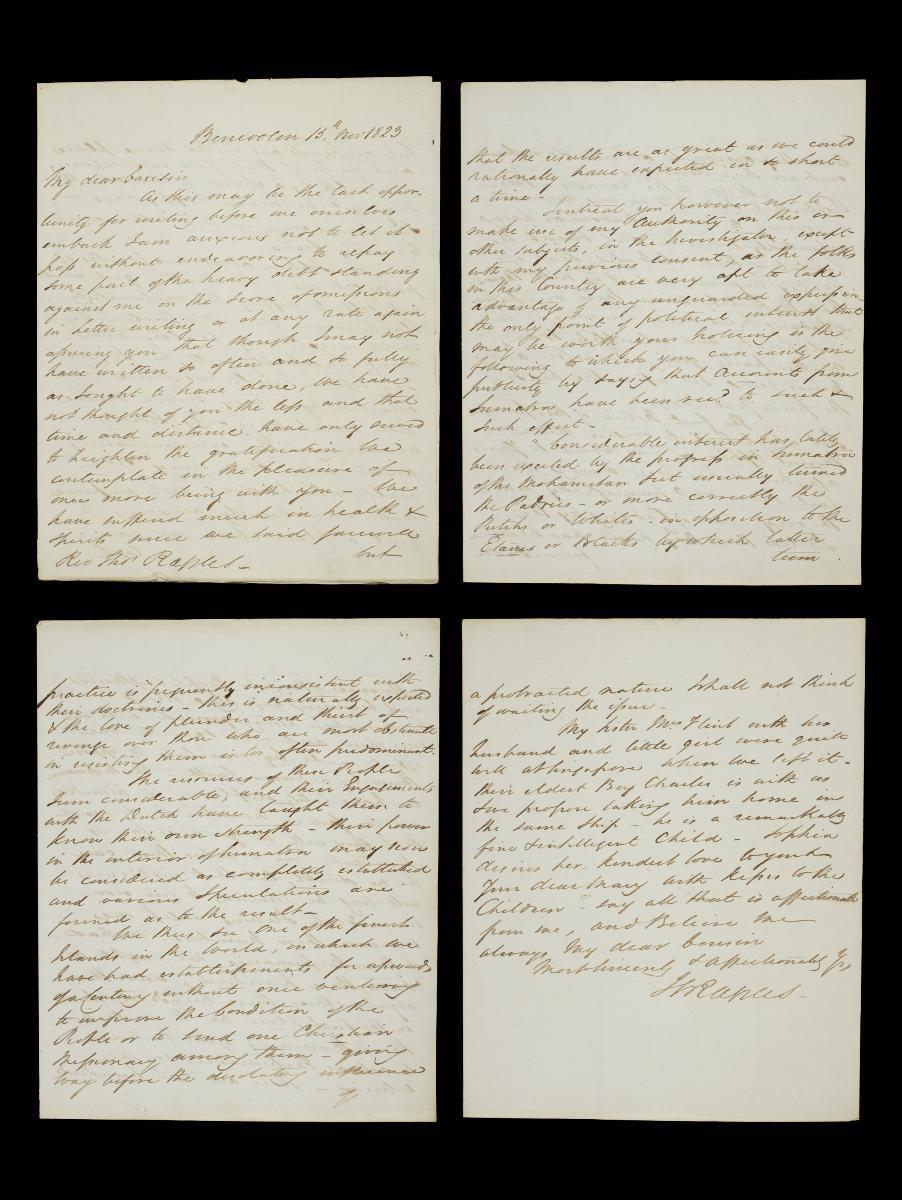 Bencoolen 15th Novr 1823
My dear Cousin
As this may be the last oppor-
tunity for writing before we ourselves
embark I am anxious not to let it
pass without endeavoring to repay
some part of the heavy debt standing
against me on the score of omissions
in letter writing or at any rate again
assuring you that though I may not
have written so often and so fully
as I ought to have done, We have
not thought of you the less and that
time and distance have only served
to heighten the gratification We
contemplate in the pleasure of
once more being with you - We
have suffered much in health &
spirits since we said farewell
Rev Thos Raffles - but
that the results are as great as we could
rationally have expected in so short
a time -
I intreat you however not to
make use of my Authority on this or
other subjects, in the Investigator, except
with my previous consent, as the folks
in this Country are very apt to take
advantage of any unguarded expression
the only point of political interest that
may be worth your noticing is the
following to which you can easily give
publicity by saying that Accounts from
Sumatra have been recd to such &
such effect -
"Considerable interest has lately
been excited by the progress in Sumatra
of the Mahomitan Sect usually termed
the Padries - or more correctly the
Putihs or Whites - in opposition to the
Etams or Blacks by which latter
term
practice is frequently inconsistent with
their doctrines - this is naturally expected
& the love of plunder and thirst of
revenge over those who are most obstinate
in resisting them is too often predominant.
The resources of these People
seem considerable, and their Engagements
with the Dutch have taught them to
know their own strength - their power
in the interior of Sumatra may now
be considered as completely established
and various Speculations are
formed as to the result -
We thus see One of the finest
Islands in the World, on which we
have had establishments for upwards
of a Century without once venturing
to improve the Condition of the
People or to send one Christian
Missionary among them - giving
way before the desolating influence
of
a protracted nature I shall not think
of waiting the issue -
My Sister Mrs Flint with her
husband and little girl were quite
well at Singapore when we left it -
their eldest Boy Charles is with us
& we propose taking him home in
the same Ship - he is a remarkably
fine & intelligent Child - Sophia
desires her kindest love to you &
Your dear Mary with kisses to the
Children - say all that is affectionate
from me, and Believe me
always My dear Cousin
Most sincerely & affectionately Yrs
T S Raffles -